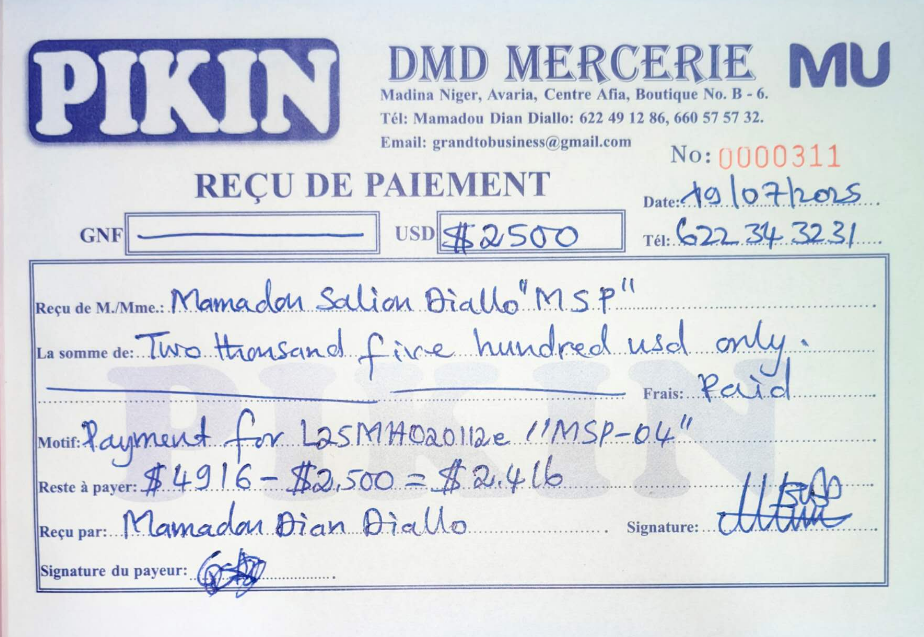 PIKIN
DMD MERCERIE
MU
Madina Niger, Avaria, Centre Afia, Boutique No. B - 6.
Tél: Mamadou Dian Diallo: 622 49 12 86, 660 57 57 32.
Email: grandtobusiness@gmail.com
No: 0000311
REÇU DE PAIEMENT
Date: 19/07/2025
GNF
USD $2500
Tél: 622 34 32 31
Reçu de M./Mme.: Mamadou Saliou Diallo "MSP"
La somme de: Two thousand five hundred usd only.
Frais: Paid
Motif: Payment for L25MH020112e "MSP-04"
Reste à payer: $4916 - $2,500 = $2.416
Reçu par: Mamadou Dian Diallo
Signature:
Signature du payeur:
PIKIN